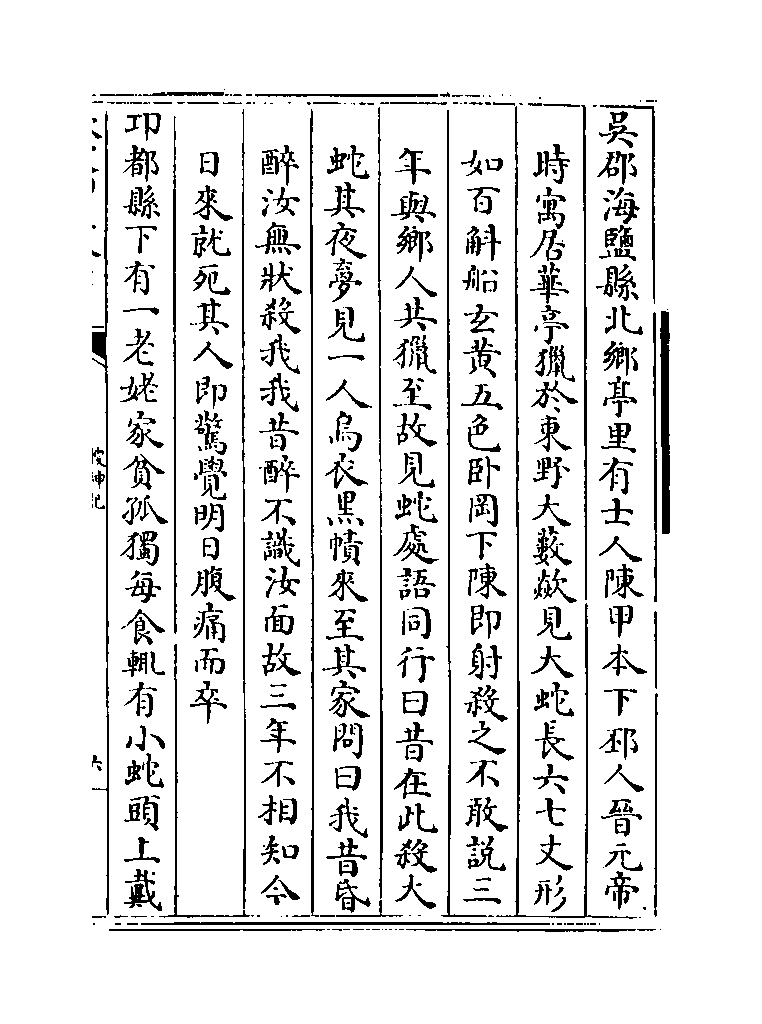 吳郡海鹽縣北鄉亭里有士人陳甲本下邳人晉元帝
時寓居華亭獵於東野大藪歘見大蛇長六七丈形
如百斛船玄黃五色卧岡下陳即射殺之不敢說三
年與鄉人共獵至故見蛇處語同行曰昔在此殺大
蛇其夜夢見一人烏衣黑幘來至其家問曰我昔昏
醉汝無狀殺我我昔醉不識汝面故三年不相知今
日來就死其人即驚覺明日腹痛而卒
卭都縣下有一老姥家貧孤獨每食輒有小蛇頭上戴
搜神記
六